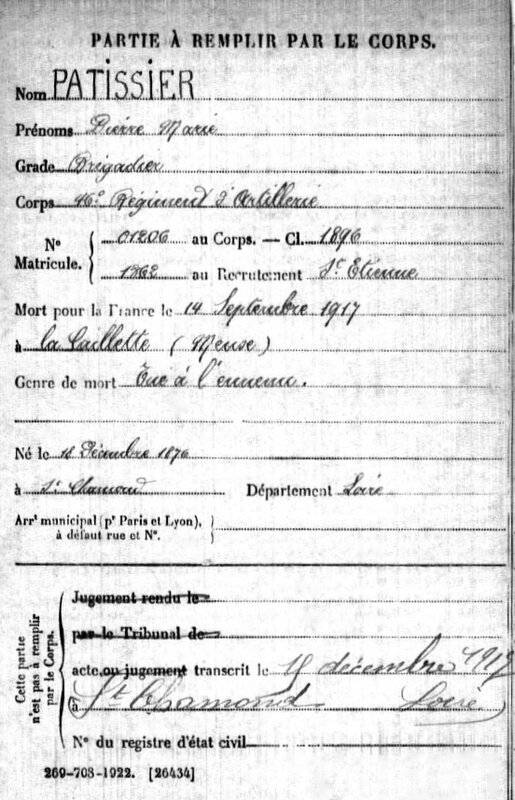 PARTIE À REMPLIR PAR LE CORPS.
Nom PATISSIER
Prénoms Pierre Marie
Grade Brigadier
Corps 46e Régiment d'Artillerie
N° Matricule. 01206 au Corps. — Cl. 1896
1362 au Recrutement St Etienne
Mort pour la France le 14 Septembre 1917
à la Caillette (Meuse)
Genre de mort Tué à l'ennemi.
Né le 18 Décembre 1876
à St Chamond Département Loire
Arrt municipal (pr Paris et Lyon), à défaut rue et N°.
Cette partie n'est pas à remplir par le Corps.
Jugement rendu le
par le Tribunal de
acte ou jugement transcrit le décembre 1917
à St Chamond Loire
N° du registre d'état civil
269-708-1922. [26434]